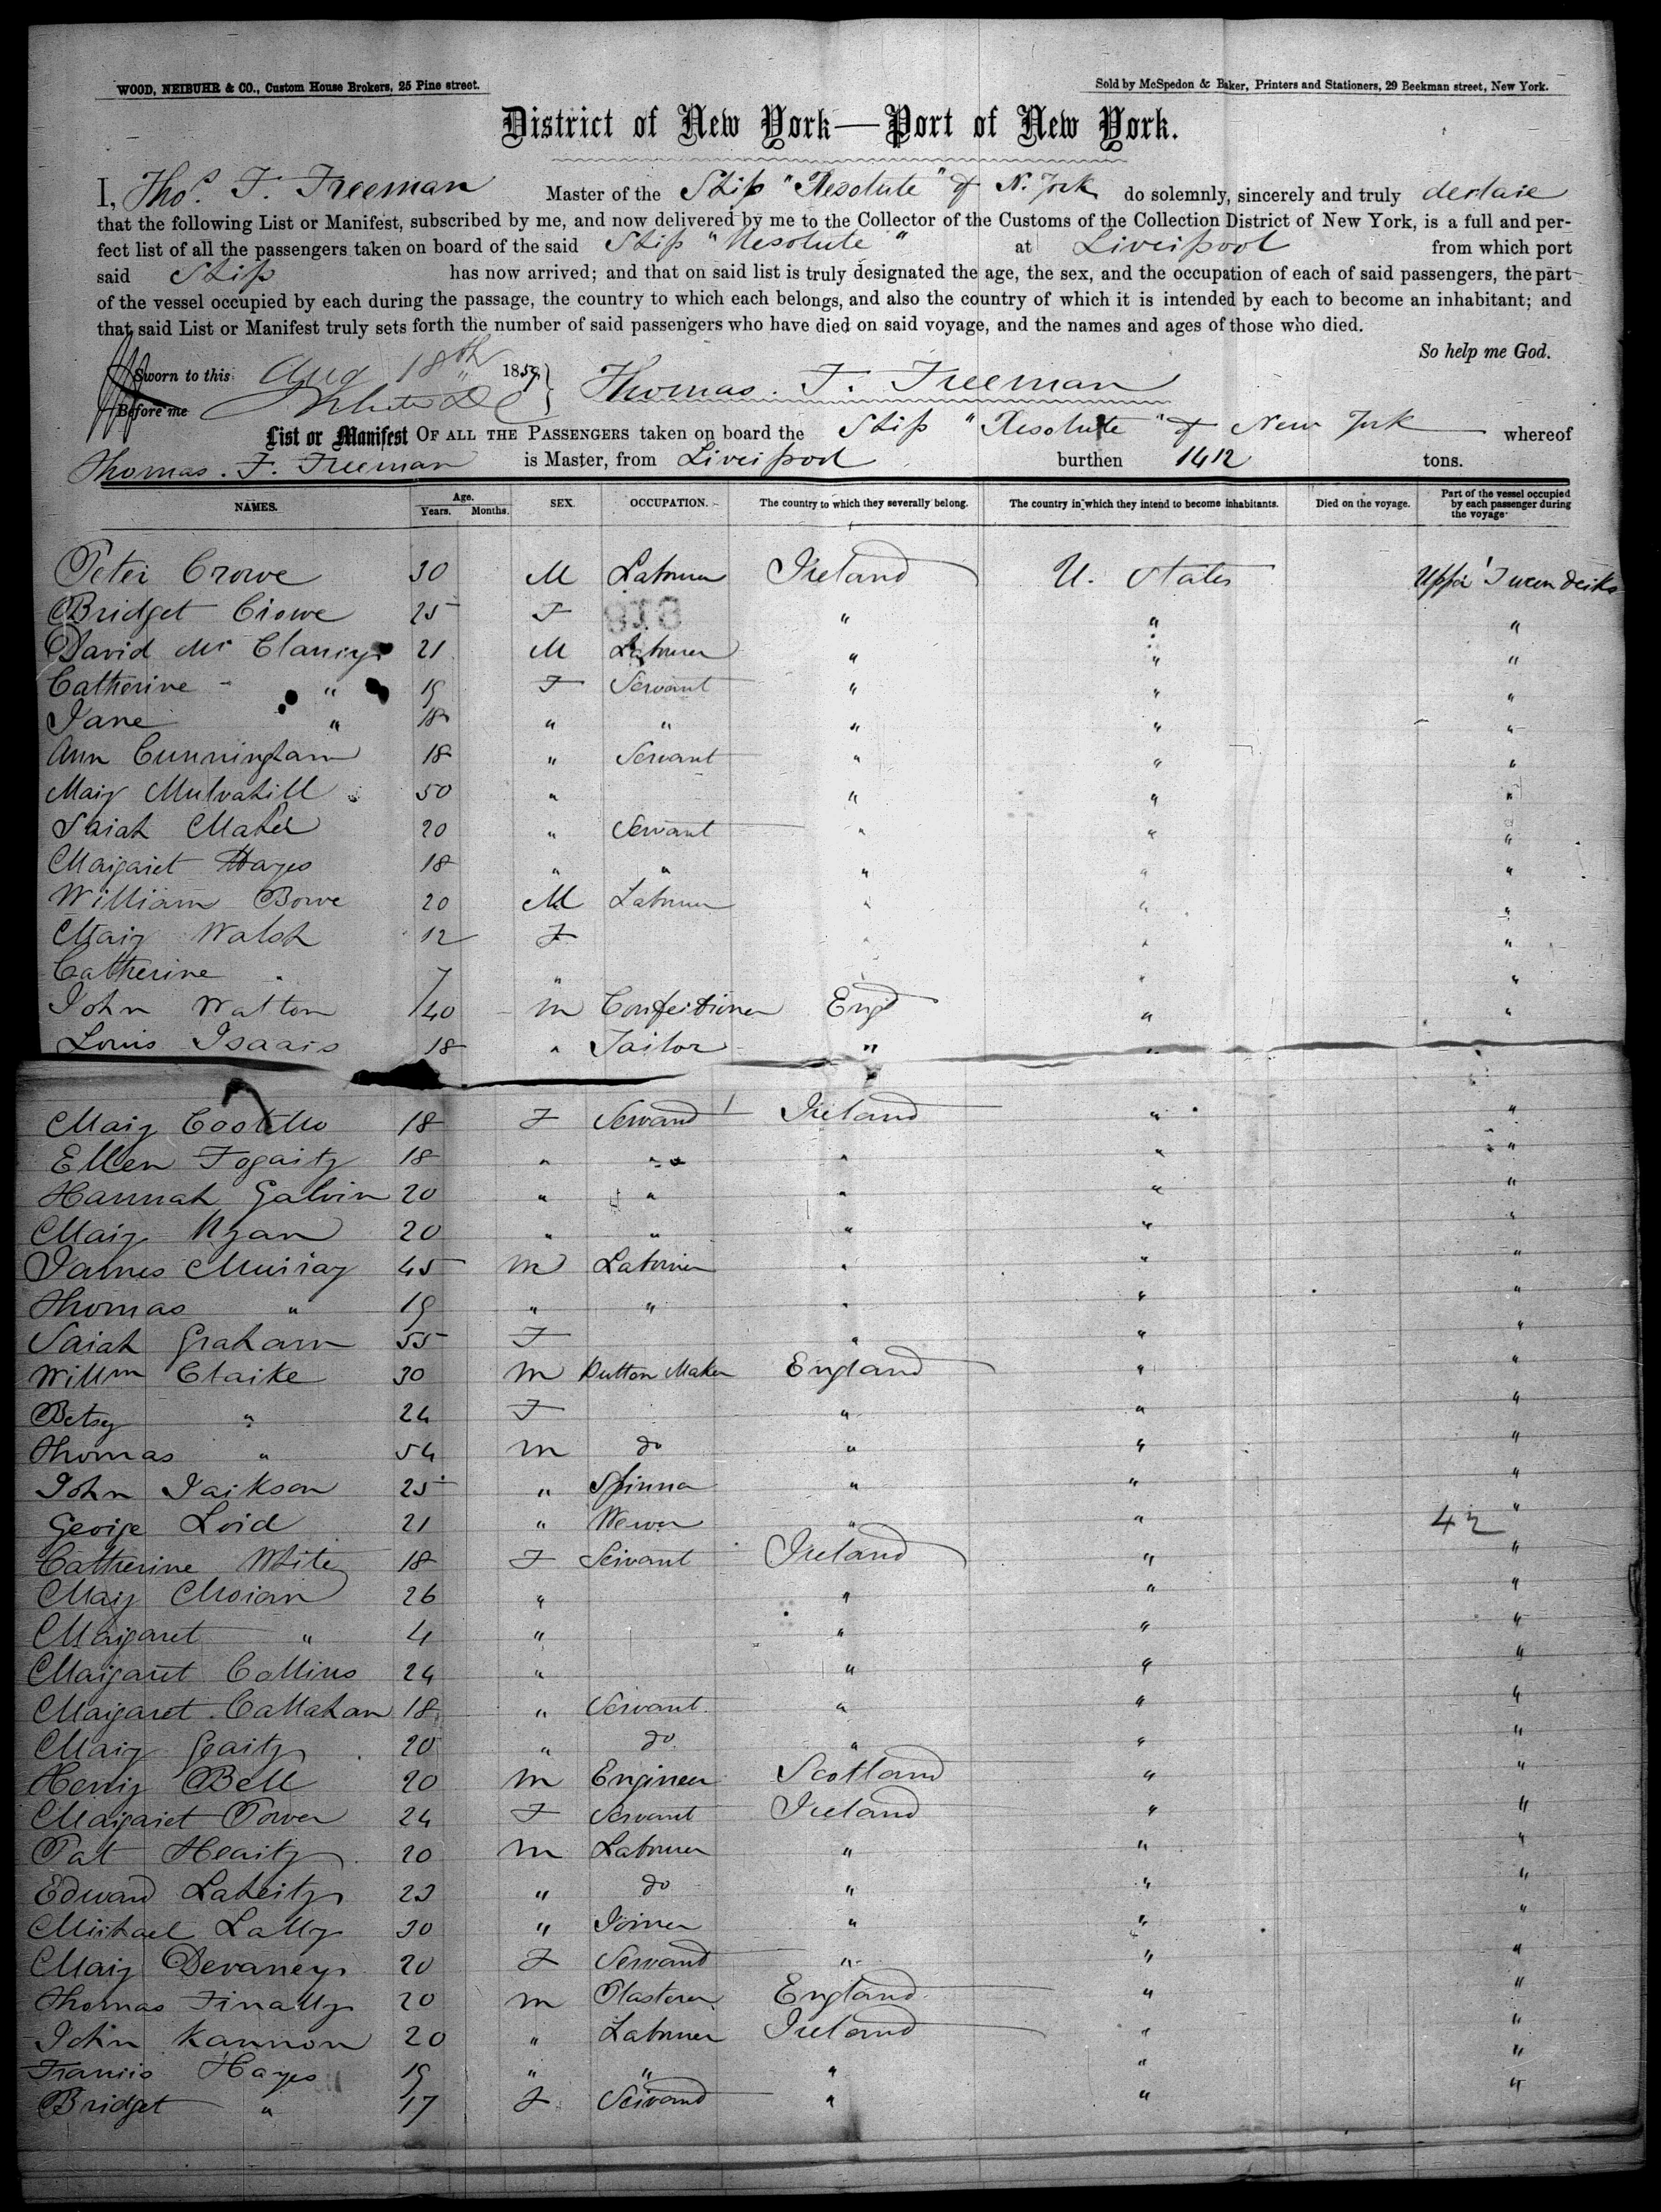 WOOD, NEIBUHR & CO., Custom House Brokers, 25 Pine street. Sold by McSpedon & Baker, Printers and Stationers, 29 Beekman street, New York.
District of New York—Port of New York.
I, Thos. F. Freeman Master of the Ship "Resolute" of N. York do solemnly, sincerely and truly declare
that the following List or Manifest, subscribed by me, and now delivered by me to the Collector of the Customs of the Collection District of New York, is a full and per-
fect list of all the passengers taken on board of the said Ship "Resolute" at Liverpool from which port
said Ship has now arrived; and that on said list is truly designated the age, the sex, and the occupation of each of said passengers, the part
of the vessel occupied by each during the passage, the country to which each belongs, and also the country of which it is intended by each to become an inhabitant; and
that said List or Manifest truly sets forth the number of said passengers who have died on said voyage, and the names and ages of those who died.
So help me God.
Sworn to this Aug 18th 1859 Thomas. F. Freeman
Before me
List or Manifest OF ALL THE PASSENGERS taken on board the Ship "Resolute" of New York whereof
Thomas. F. Freeman is Master, from Liverpool burthen 1412 tons.
NAMES. Age. Years. Months. SEX. OCCUPATION. The country to which they severally belong. The country in which they intend to become inhabitants. Died on the voyage. Part of the vessel occupied by each passenger during the voyage.
Peter Crowe 30 M Labourer Ireland U. States Upper Tween decks
Bridget Crowe 25 F " " "
David Mc Clancy 21 M Labourer " " "
Catherine " 19 F Servant " " "
Jane " 18 " " " " "
Ann Cunningham 18 " Servant " " "
Mary Mulvahill 50 " " " "
Sarah Maher 20 " Servant " " "
Margaret Hayes 18 " " " " "
William Bowe 20 M Labourer " " "
Mary Walsh 12 F " " "
Catherine " 7 " " "
John Walton 40 M Confectioner Engd " "
Louis Isaacs 18 " Tailor " "
Mary Costello 18 F Servand Ireland " "
Ellen Fogarty 18 " " " " "
Hannah Galvin 20 " " " " "
Mary Ryan 20 " " " " "
James Murray 45 M Labourer " " "
Thomas " 19 " " " " "
Sarah Graham 55 F " " "
Willm Clarke 30 M Button Maker England " "
Betsy " 24 F " " "
Thomas " 54 M do " " "
John Jackson 25 " Spinner " " "
George Lord 21 " Wever " " 42 "
Catherine White 18 F Servant Ireland " "
Mary Moran 26 " " " "
Margaret " 4 " " " "
Margaret Collins 24 " " " "
Margaret Callahan 18 " Servant " " "
Mary Gearty 20 " do " " "
Henry Bell 20 M Engineer Scotland " "
Margaret Power 24 F Servant Ireland " "
Pat Hearty 20 M Labourer " " "
Edward Laherty 23 " do " " "
Michael Lally 30 " Joiner " " "
Mary Devaney 20 F Servand " " "
Thomas Finally 20 M Plasterer England " "
John Kannon 20 " Labourer Ireland " "
Francis Hayes 19 " " " " "
Bridget " 17 F Servand " " "